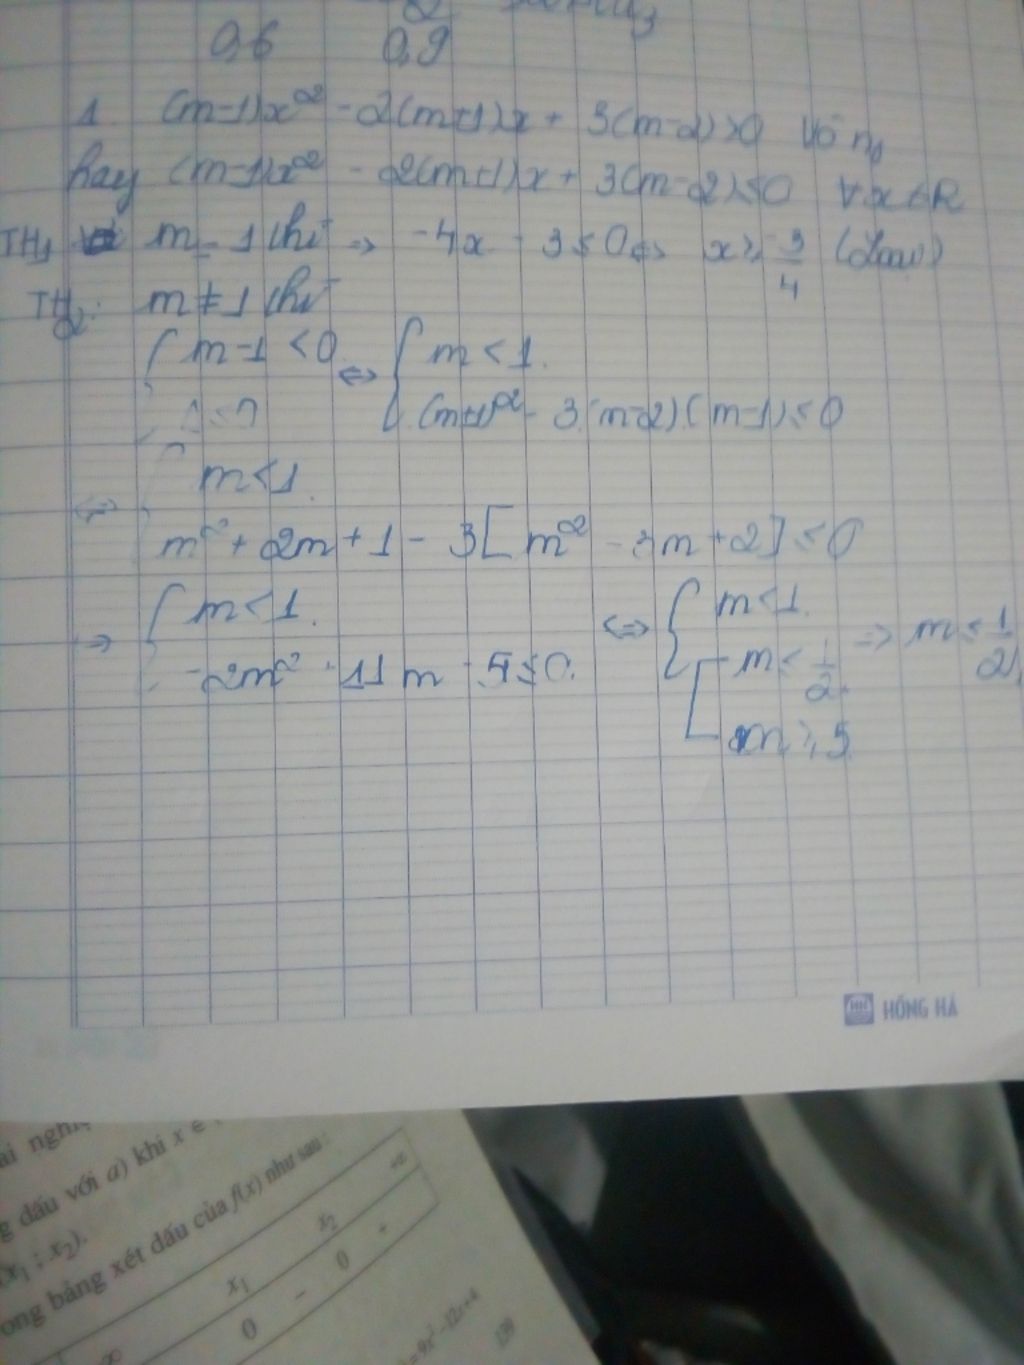 0,6 0,9
1. (m-1)x² - 2(m+1)x + 3(m-2) > 0 vô n₀
hay (m-1)x² - 2(m+1)x + 3(m-2) ≤ 0 ∀x∈R
TH₁ m = 1 thì => -4x - 3 ≤ 0 <=> x ≥ -3/4 (loại)
TH₂: m ≠ 1 thì
{ m-1 < 0 <=> { m < 1.
Δ' ≤ 0 (m+1)² - 3(m-2).(m-1) ≤ 0
{ m < 1.
<=> m² + 2m + 1 - 3[m² - 3m + 2] ≤ 0
=> { m < 1. <=> { m < 1.
-2m² + 11m - 5 ≤ 0. [ m ≤ 1/2. => m ≤ 1/2
m ≥ 5
HỒNG HÀ
ai nghi
g dấu với a) khi x ∈
x₁ ; x₂).
ong bảng xét dấu của f(x) như sau :
x₁ x₂ +∞
0 - 0 +
= 9x² - 12x + 4